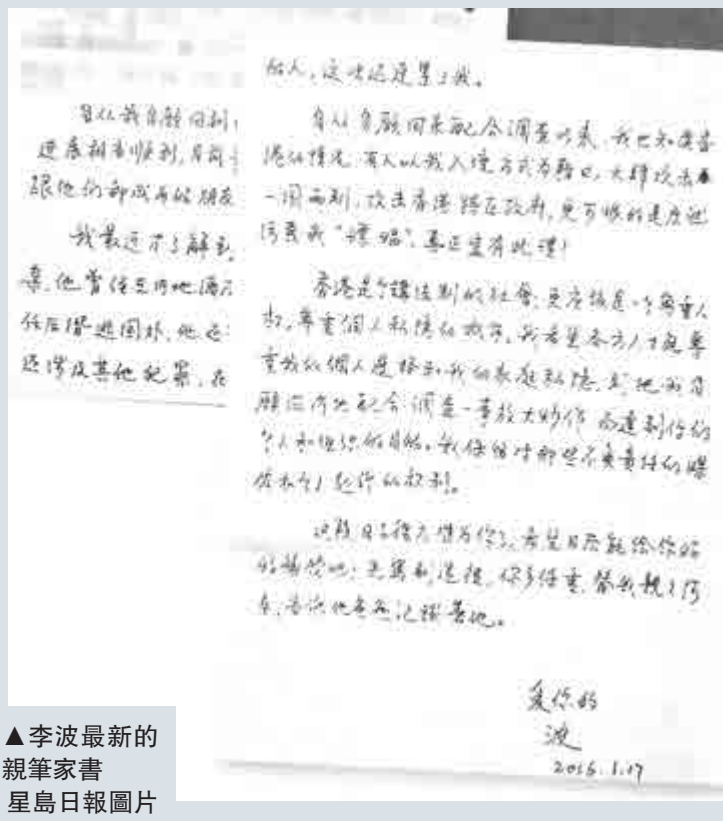 自从我自願回到
进展相當順利,目前
跟他们都成为好朋友
我最近才了解到,
他曾任
任后潜逃国外,他还
还涉及其他犯罪,在
的人,这次还连累了我。
自从自願回来配合調查以来,我也知道香
港的情况,有人以我入境方式为藉口,大肆攻击
一国两制,攻击香港特区政府,更可恨的是
污衊我“嫖娼”,真正豈有此理!
香港是个講法制的社會,更应該是一个尊重人
权,尊重個人私隐的城市,我希望各方人士能尊
重我的個人选择和我的家庭私隐,别把我自
願返内地配合调查一事放大炒作 而達到
个人和组织的目的。我保留对那些不負責任的媒
体和个人起诉的权利。
这段日子徥大難为你了,希望日后能给你好
好補偿吧!先寫到这裡,你多保重,替我親
,告诉他爸爸记掛着他。
爱你的
波
2016.1.17
▲李波最新的
親筆家書
星島日報圖片